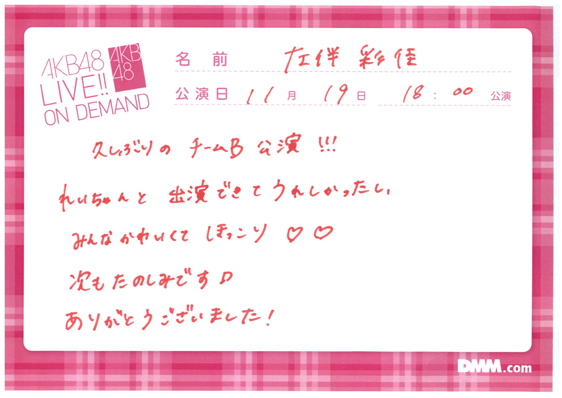 AKB48
LIVE!!
ON DEMAND
AKB
48
名前 左伴彩佳
公演日 11月19日 18:00公演
久しぶりの チームB 公演 !!!
れいちゃんと 出演できてうれしかったし、
みんなかわいくて ほっこり ♡ ♡
次もたのしみです♪
ありがとうございました!
DMM.com